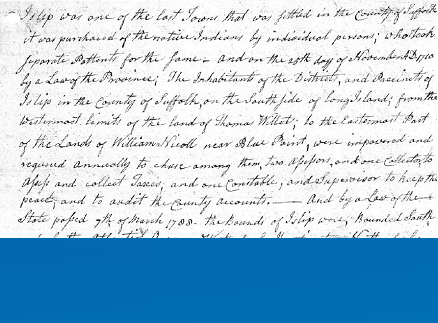 Islip was one of the last Towns that was settled in the County of Suffolk
it was purchased of the native Indians by individual persons; who took
separate Pattents for the same - and on the 25th day of November A.D. 1710
by a Law of the Province; The Inhabitants of the Districts, and Precincts of
Islip in the County of Suffolk, on the South side of long Island; from the
Westermost limits of the land of Thomas Willet; to the Eastermost Part
of the Lands of William Nicoll near Blue Point, were impowered and
required annually to chuse among them, two Assessors, and one Collector to
Assess and collect Taxes, and one Constable, and Supervisor to keep the
peace, and to audit the County accounts. And by a Law of the
State passed 7th of March 1788 - the Bounds of Islip were; Bounded South